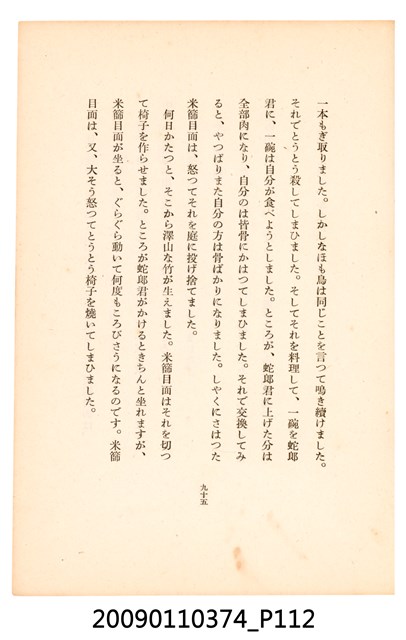 一本もぎ取りました。しかしなほも鳥は同じことを言つて鳴き續けました。
それでとうとう殺してしまひました。そしてそれを料理して、一碗を蛇郎
君に、一碗は自分が食べようとしました。ところが、蛇郎君に上げた分は
全部肉になり、自分のは皆骨にかはつてしまひました。それで交換してみ
ると、やつぱりまた自分の方は骨ばかりになりました。しやくにさはつた
米篩目面は、怒つてそれを庭に投げ捨てました。
何日かたつと、そこから澤山な竹が生えました。米篩目面はそれを切つ
て椅子を作らせました。ところが蛇郎君がかけるときちんと坐れますが、
米篩目面が坐ると、ぐらぐら動いて何度もころびさうになるのです。米篩
目面は、又、大そう怒つてとうとう椅子を燒いてしまひました。
九十五
20090110374_P112